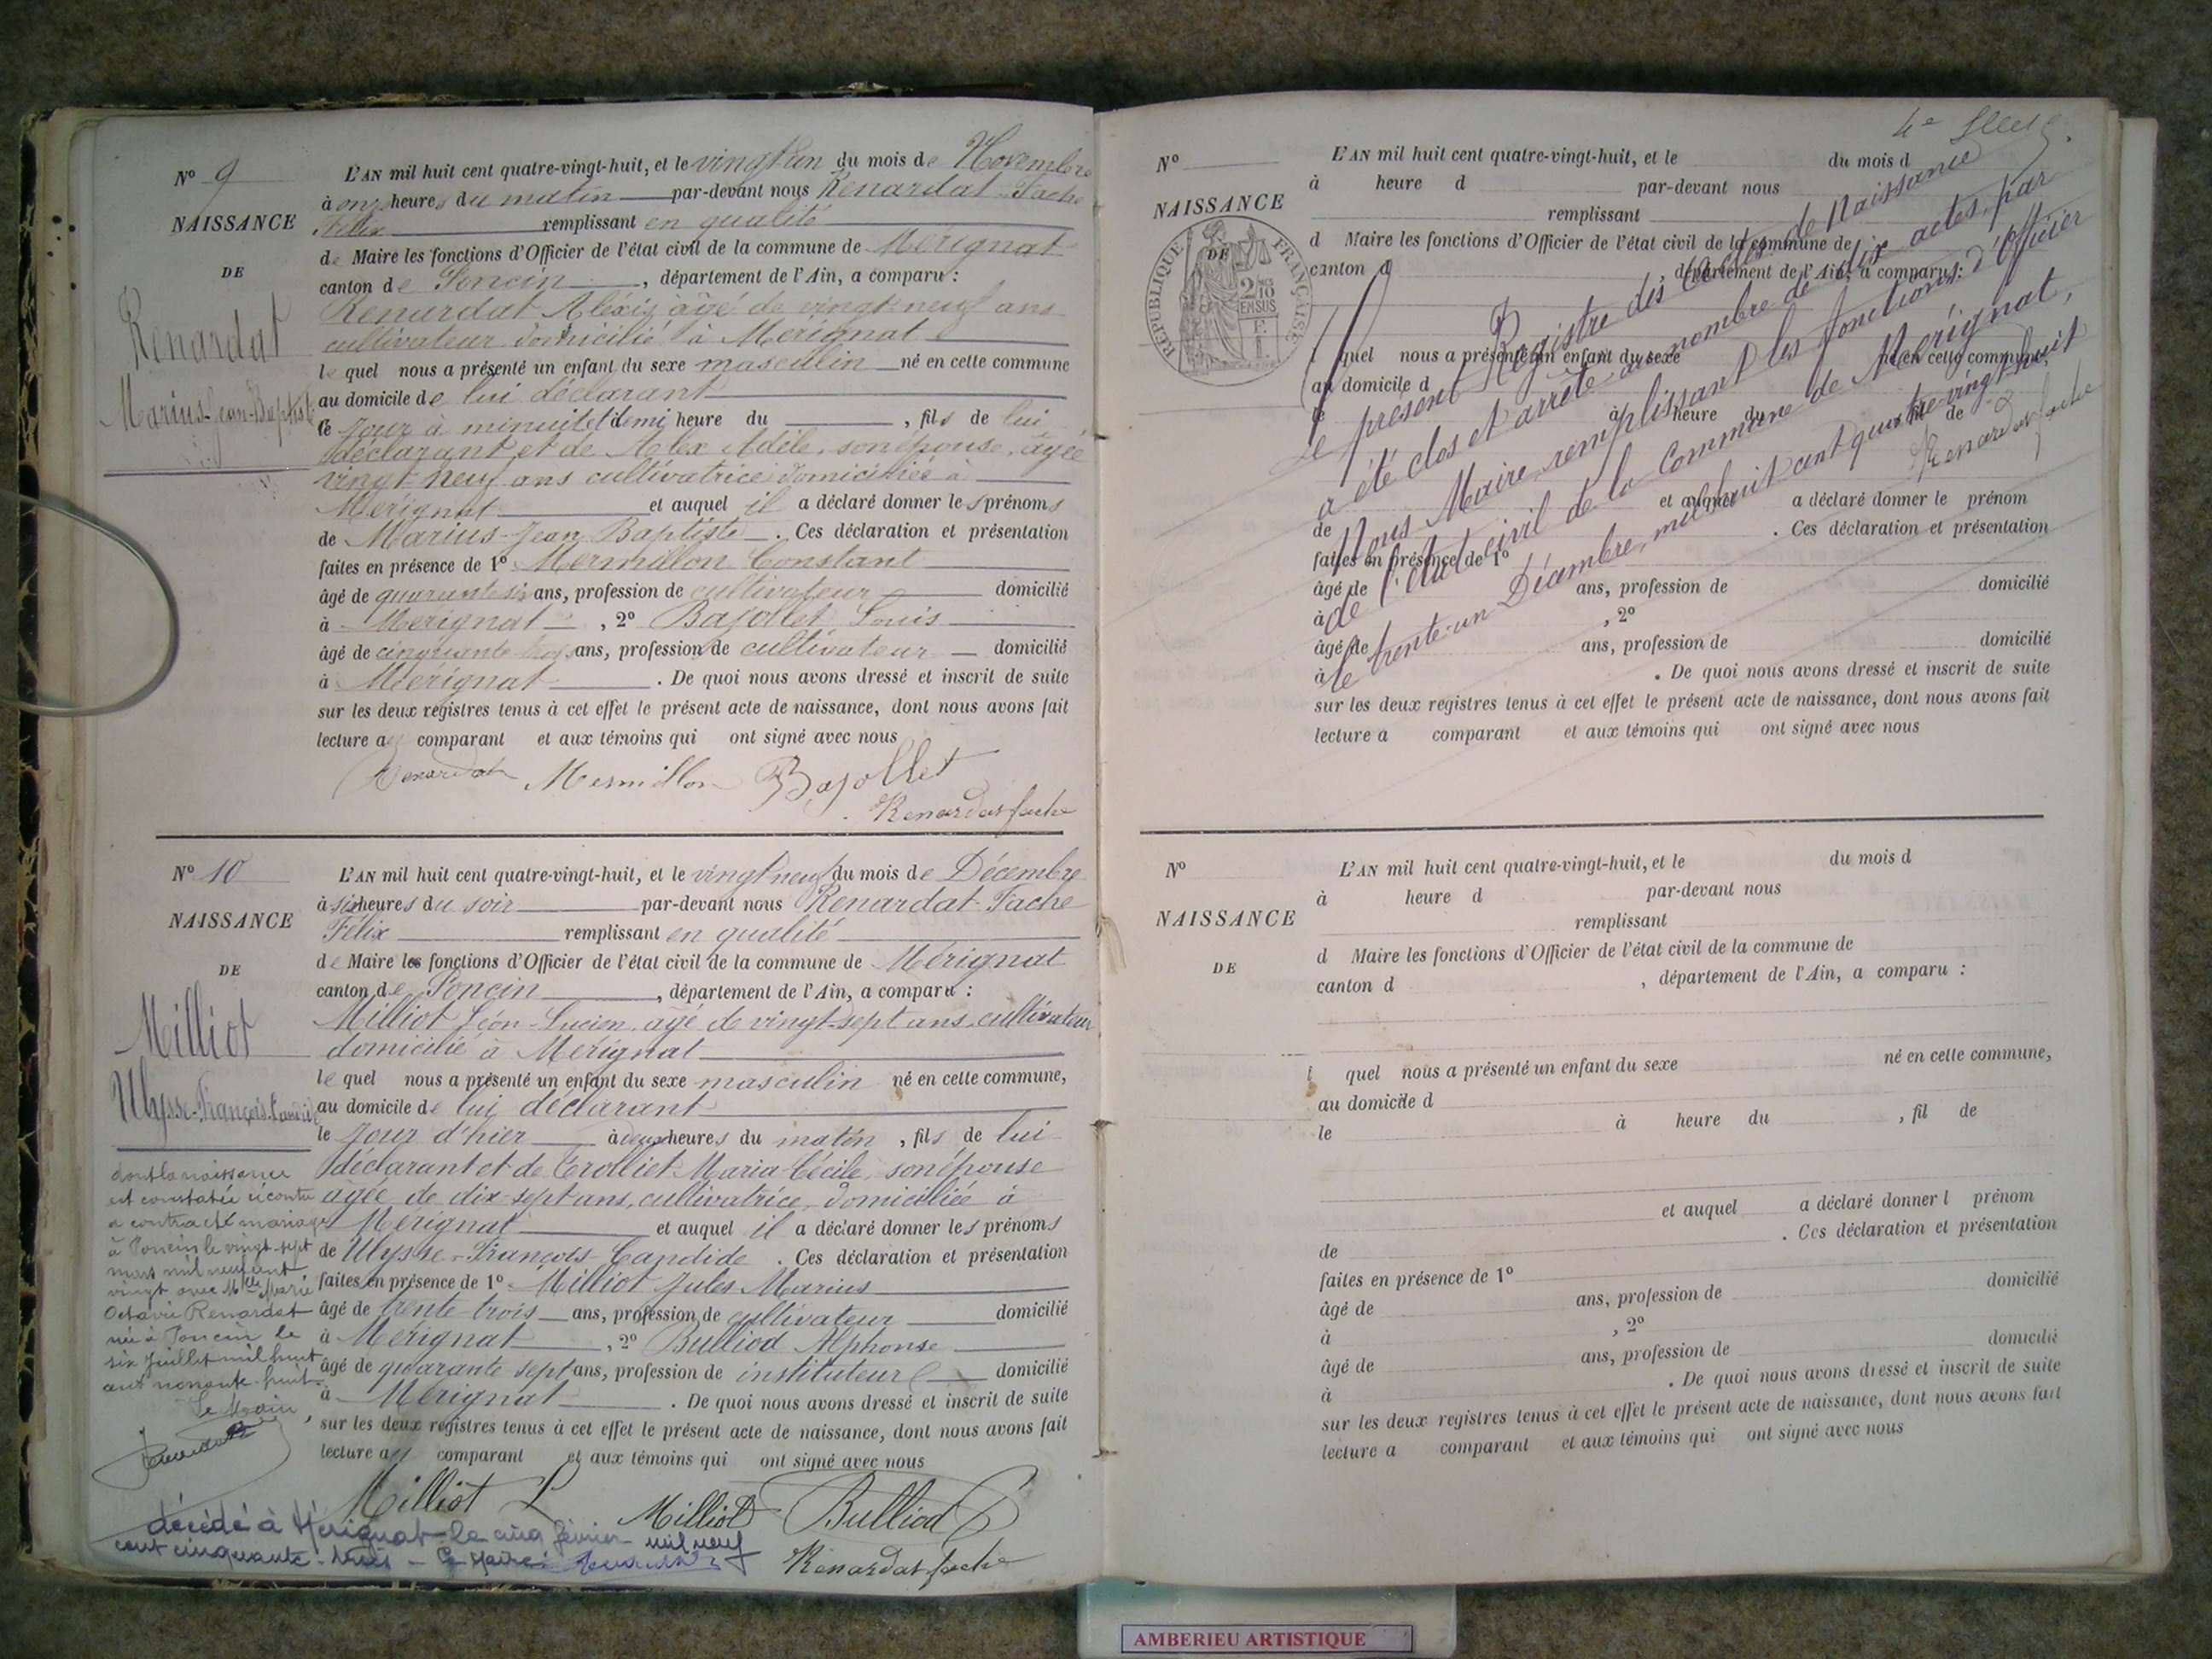 Nº 9
NAISSANCE
DE
Renardat
Marius-Jean-Baptiste
L'AN mil huit cent quatre-vingt-huit, et le vingt un du mois de Novembre
à onze heures du matin par-devant nous Renardat-Fache
Félix remplissant en qualité
de Maire les fonctions d'Officier de l'état civil de la commune de Mérignat
canton de Poncin, département de l'Ain, a comparu :
Renardat Alexis âgé de vingt-neuf ans
cultivateur domicilié à Mérignat
le quel nous a présenté un enfant du sexe masculin né en cette commune
au domicile de lui déclarant
le jour à minuit et demi heure du , fils de lui
déclarant et de Alex Adèle, son épouse, âgée
vingt-neuf ans cultivatrice domiciliée à
Mérignat et auquel il a déclaré donner les prénoms
de Marius-Jean Baptiste. Ces déclaration et présentation
faites en présence de 1º Mermillon Constant
âgé de quarante six ans, profession de cultivateur domicilié
à Mérignat, 2º Bajollet Louis
âgé de cinquante trois ans, profession de cultivateur domicilié
à Mérignat. De quoi nous avons dressé et inscrit de suite
sur les deux registres tenus à cet effet le présent acte de naissance, dont nous avons fait
lecture au comparant et aux témoins qui ont signé avec nous
Renardat Mermillon Bajollet
Renardat fache
Nº 10
NAISSANCE
DE
Milliot
Ulysse-François-Candide
L'AN mil huit cent quatre-vingt-huit, et le vingt neuf du mois de Décembre
à six heures du soir par-devant nous Renardat-Fache
Félix remplissant en qualité
de Maire les fonctions d'Officier de l'état civil de la commune de Mérignat
canton de Poncin, département de l'Ain, a comparu :
Milliot Léon-Lucien, âgé de vingt-sept ans, cultivateur
domicilié à Mérignat
le quel nous a présenté un enfant du sexe masculin né en cette commune,
au domicile de lui déclarant
le jour d'hier à deux heures du matin, fils de lui
déclarant et de Trolliet Maria Cécile, son épouse
âgée de dix-sept ans, cultivatrice, domiciliée à
Mérignat et auquel il a déclaré donner les prénoms
de Ulysse-François Candide. Ces déclaration et présentation
faites en présence de 1º Milliot Jules Marius
âgé de trente-trois ans, profession de cultivateur domicilié
à Mérignat, 2º Bulliod Alphonse
âgé de quarante sept ans, profession de instituteur domicilié
à Mérignat. De quoi nous avons dressé et inscrit de suite
sur les deux registres tenus à cet effet le présent acte de naissance, dont nous avons fait
lecture au comparant et aux témoins qui ont signé avec nous
Milliot L Milliot Bulliod
Renardat fache
dont la naissance
est constatée ci contre
a contracté mariage
à Poncin le vingt-sept
mars mil neuf cent
vingt avec Mlle Marie
Octavie Renardat
née à Poncin le
six juillet mil huit
cent nonante-huit
Le Maire
décédé à Mérignat le cinq février mil neuf
cent cinquante-trois - Le Maire
Nº
NAISSANCE
DE
RÉPUBLIQUE FRANÇAISE
2/10 EN SUS
L'AN mil huit cent quatre-vingt-huit, et le du mois d
à heure d par-devant nous
remplissant
d Maire les fonctions d'Officier de l'état civil de la commune de
canton d , département de l'Ain, a comparu :
l quel nous a présenté un enfant du sexe né en cette commune,
au domicile d
le à heure du , fil de
et auquel a déclaré donner le prénom
de . Ces déclaration et présentation
faites en présence de 1º
âgé de ans, profession de domicilié
à , 2º
âgé de ans, profession de domicilié
à . De quoi nous avons dressé et inscrit de suite
sur les deux registres tenus à cet effet le présent acte de naissance, dont nous avons fait
lecture a comparant et aux témoins qui ont signé avec nous
Le présent Registre des actes de Naissance
a été clos et arrêté au nombre de dix actes, par
Nous Maire remplissant les fonctions d'Officier
de l'état civil de la Commune de Mérignat,
le trente-un Décembre, mil huit cent quatre-vingt huit
Renardat fache
Nº
NAISSANCE
DE
L'AN mil huit cent quatre-vingt-huit, et le du mois d
à heure d par-devant nous
remplissant
d Maire les fonctions d'Officier de l'état civil de la commune de
canton d , département de l'Ain, a comparu :
l quel nous a présenté un enfant du sexe né en cette commune,
au domicile d
le à heure du , fil de
et auquel a déclaré donner l prénom
de . Ces déclaration et présentation
faites en présence de 1º
âgé de ans, profession de domicilié
à , 2º
âgé de ans, profession de domicilié
à . De quoi nous avons dressé et inscrit de suite
sur les deux registres tenus à cet effet le présent acte de naissance, dont nous avons fait
lecture a comparant et aux témoins qui ont signé avec nous
AMBERIEU ARTISTIQUE